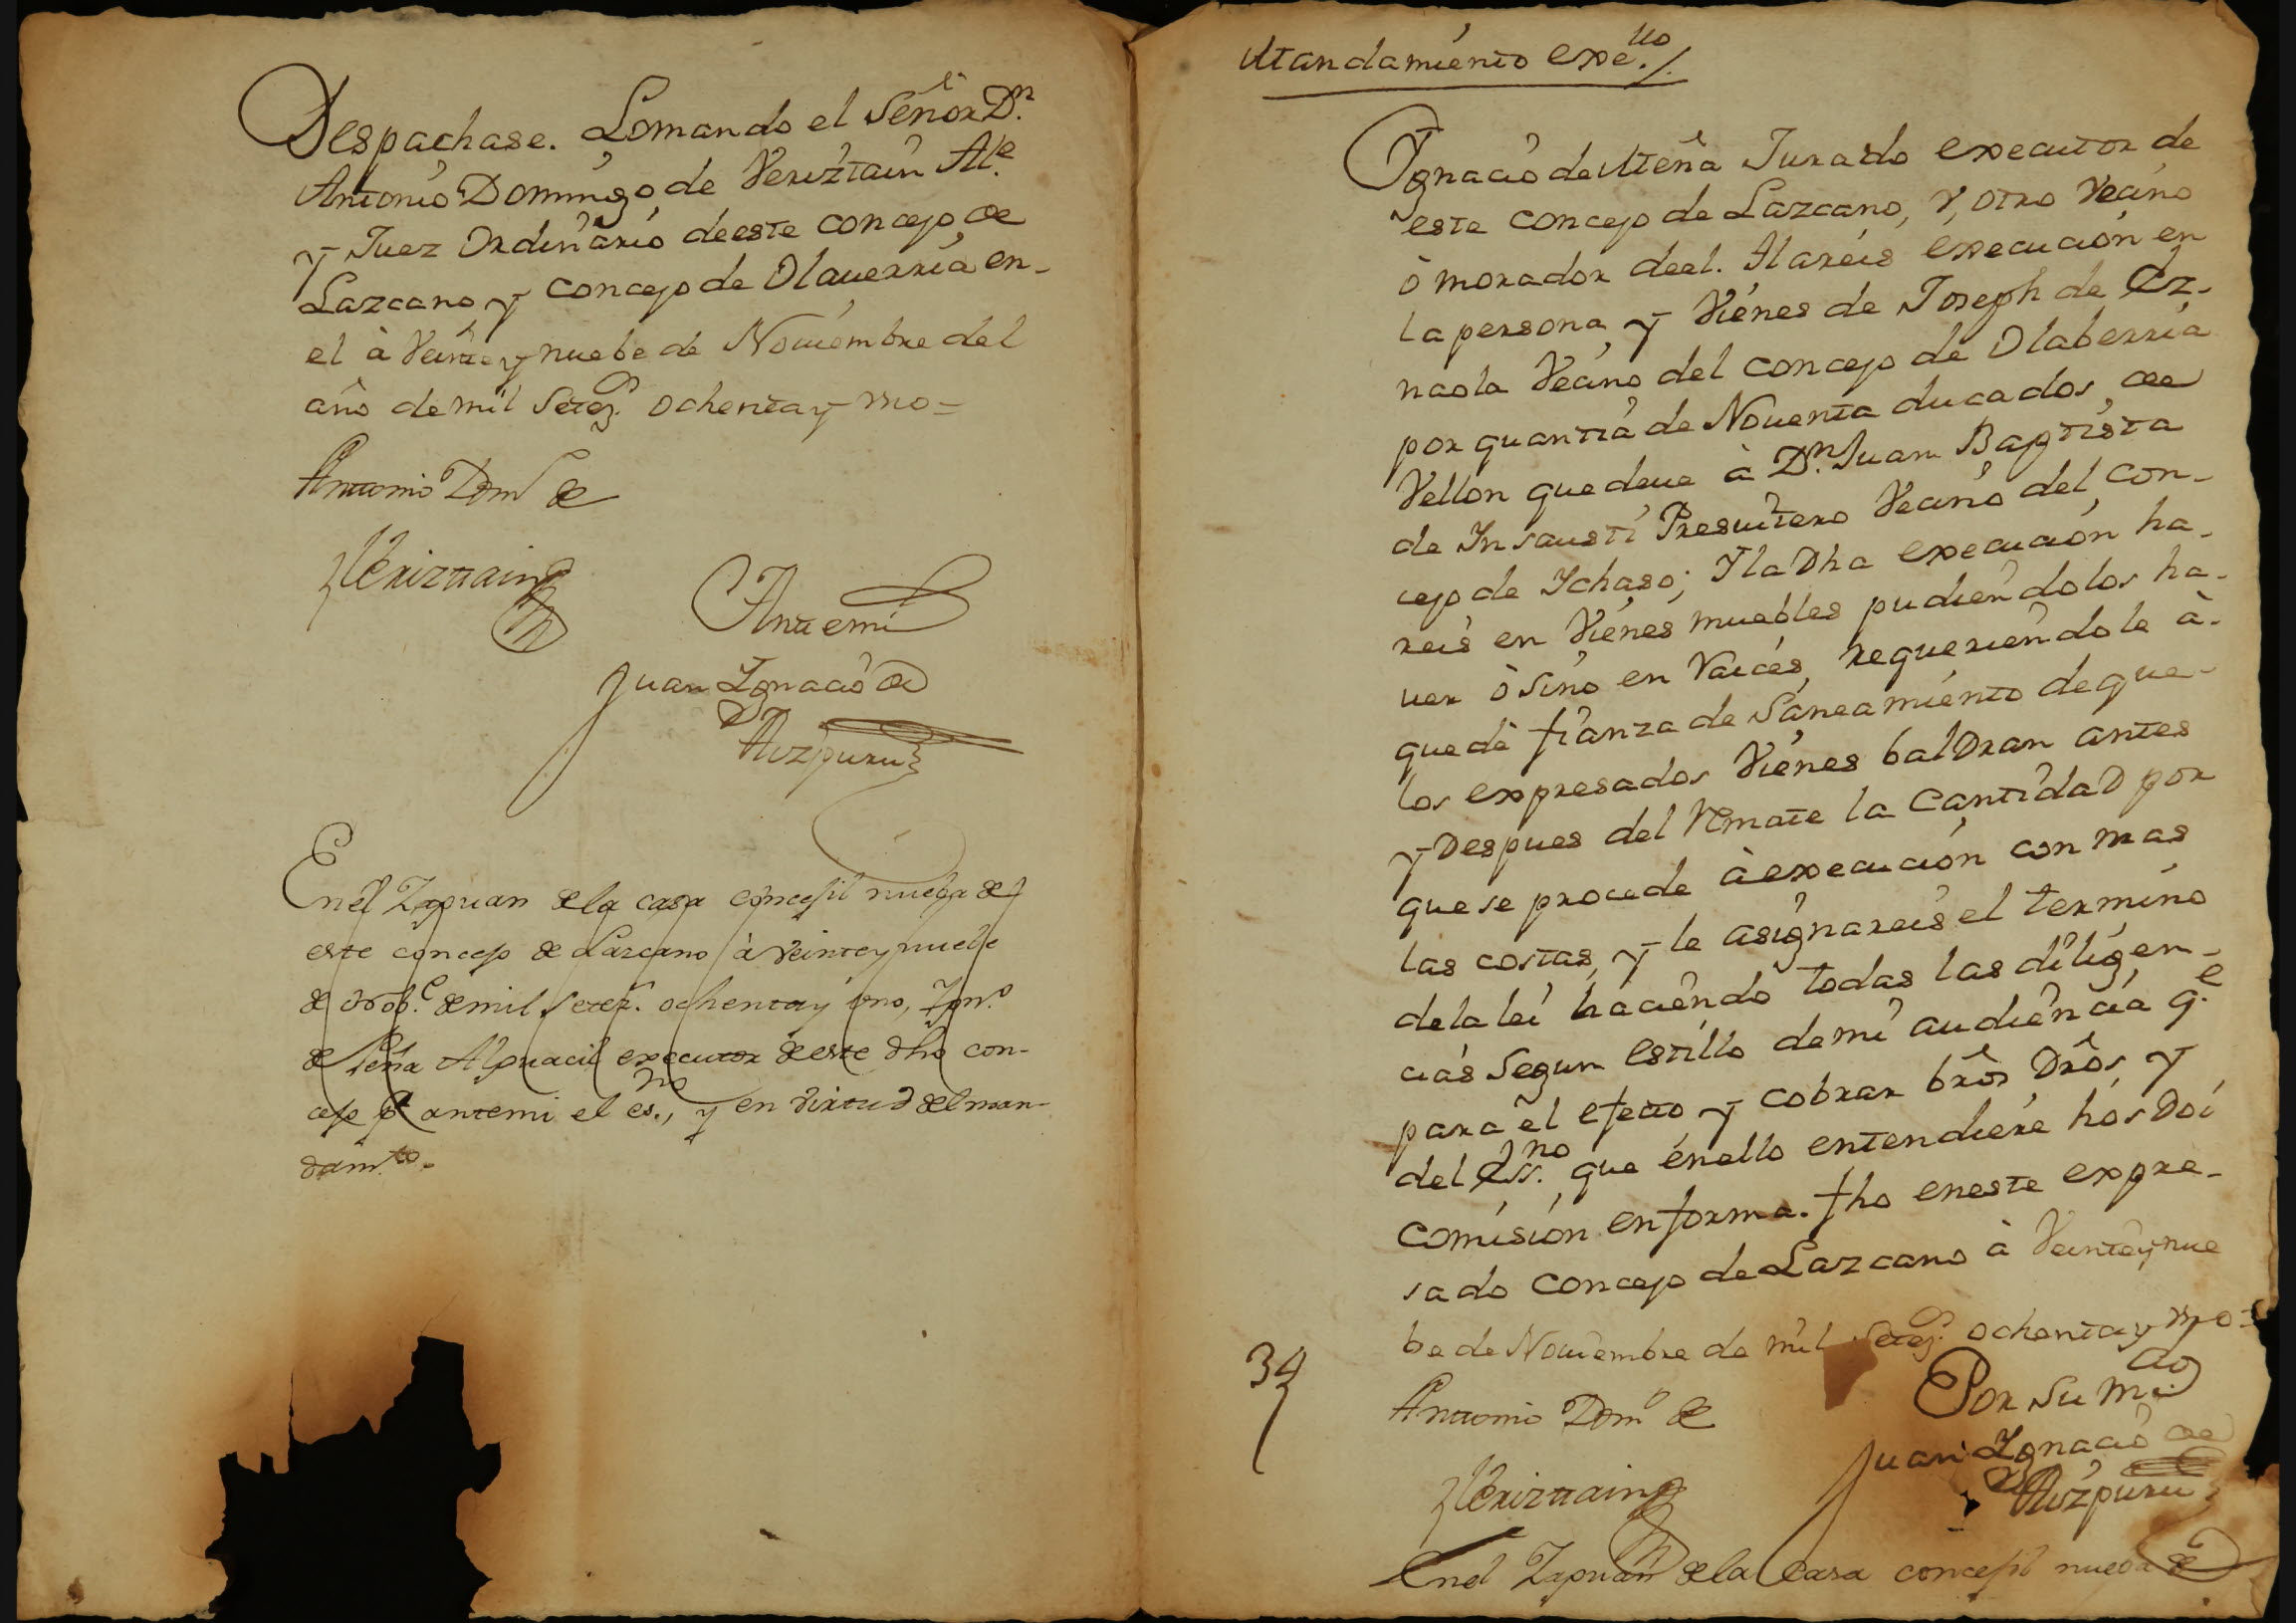 Despachase. Lo mando el Señor Dn.
Antonio Domingo de Veriztain Ale.
y Juez Ordinario de este concejo de
Lazcano y concejo de Olauerria en-
el à Veinte y nuebe de Nouiembre del
año de mil Setez.s ochenta y uno=
Antonio Domo de
Veriztain
Ante mi
Juan Ignacio de
Aizpuru
En el Zaguan de la casa concejil nueba de
este concejo de Lazcano à veinte y nuebe
de Nobe. de mil setez.s ochenta y uno, Ign.o
de Peña Alguacil executor de este dho con-
cejo pr antemi el es.no, y en virtud del man-
dam.to.
Mandamiento exe.uo/.
Ignacio de Meña Jurado executor de
este concejo de Lazcano, y, otro Vecino
ò morador de el. Hareis execucion en
la persona, y Vienes de Joseph de Ez-
naola Vecino del concejo de Olaberria
por quantia de Nouenta ducados de
Vellon que deue à Dn. Juan Baptista
de Insausti Presuitero Vecino del con-
cejo de Ichaso; Y la Dha execucion ha-
reis en Vienes muebles pudiendolos ha-
uer ò sino en Raices, requeriendole à-
que dè fianza de Saneamiento de que-
los expresados Vienes baldran antes
y Despues del Remate la Cantidad por
que se procede à execucion con mas
las costas, y le asignareis el termino
de la lei haciendo todas las diligen-
cias Segun estillo de mi audiencia q.e
para el efecto y cobrar bros Dros y
del Ess.no que en ello entendiere hos Doi
comision en forma. fho en este expre-
sado Concejo de Lazcano à Veinte y nue
be de Nouiembre de mil Setez.s ochenta y uno=
34
Antonio Domo de
Veriztain
Por su m.do
Juan Ignacio de
Aizpuru
En el Zaguan de la Casa concejil nueba de